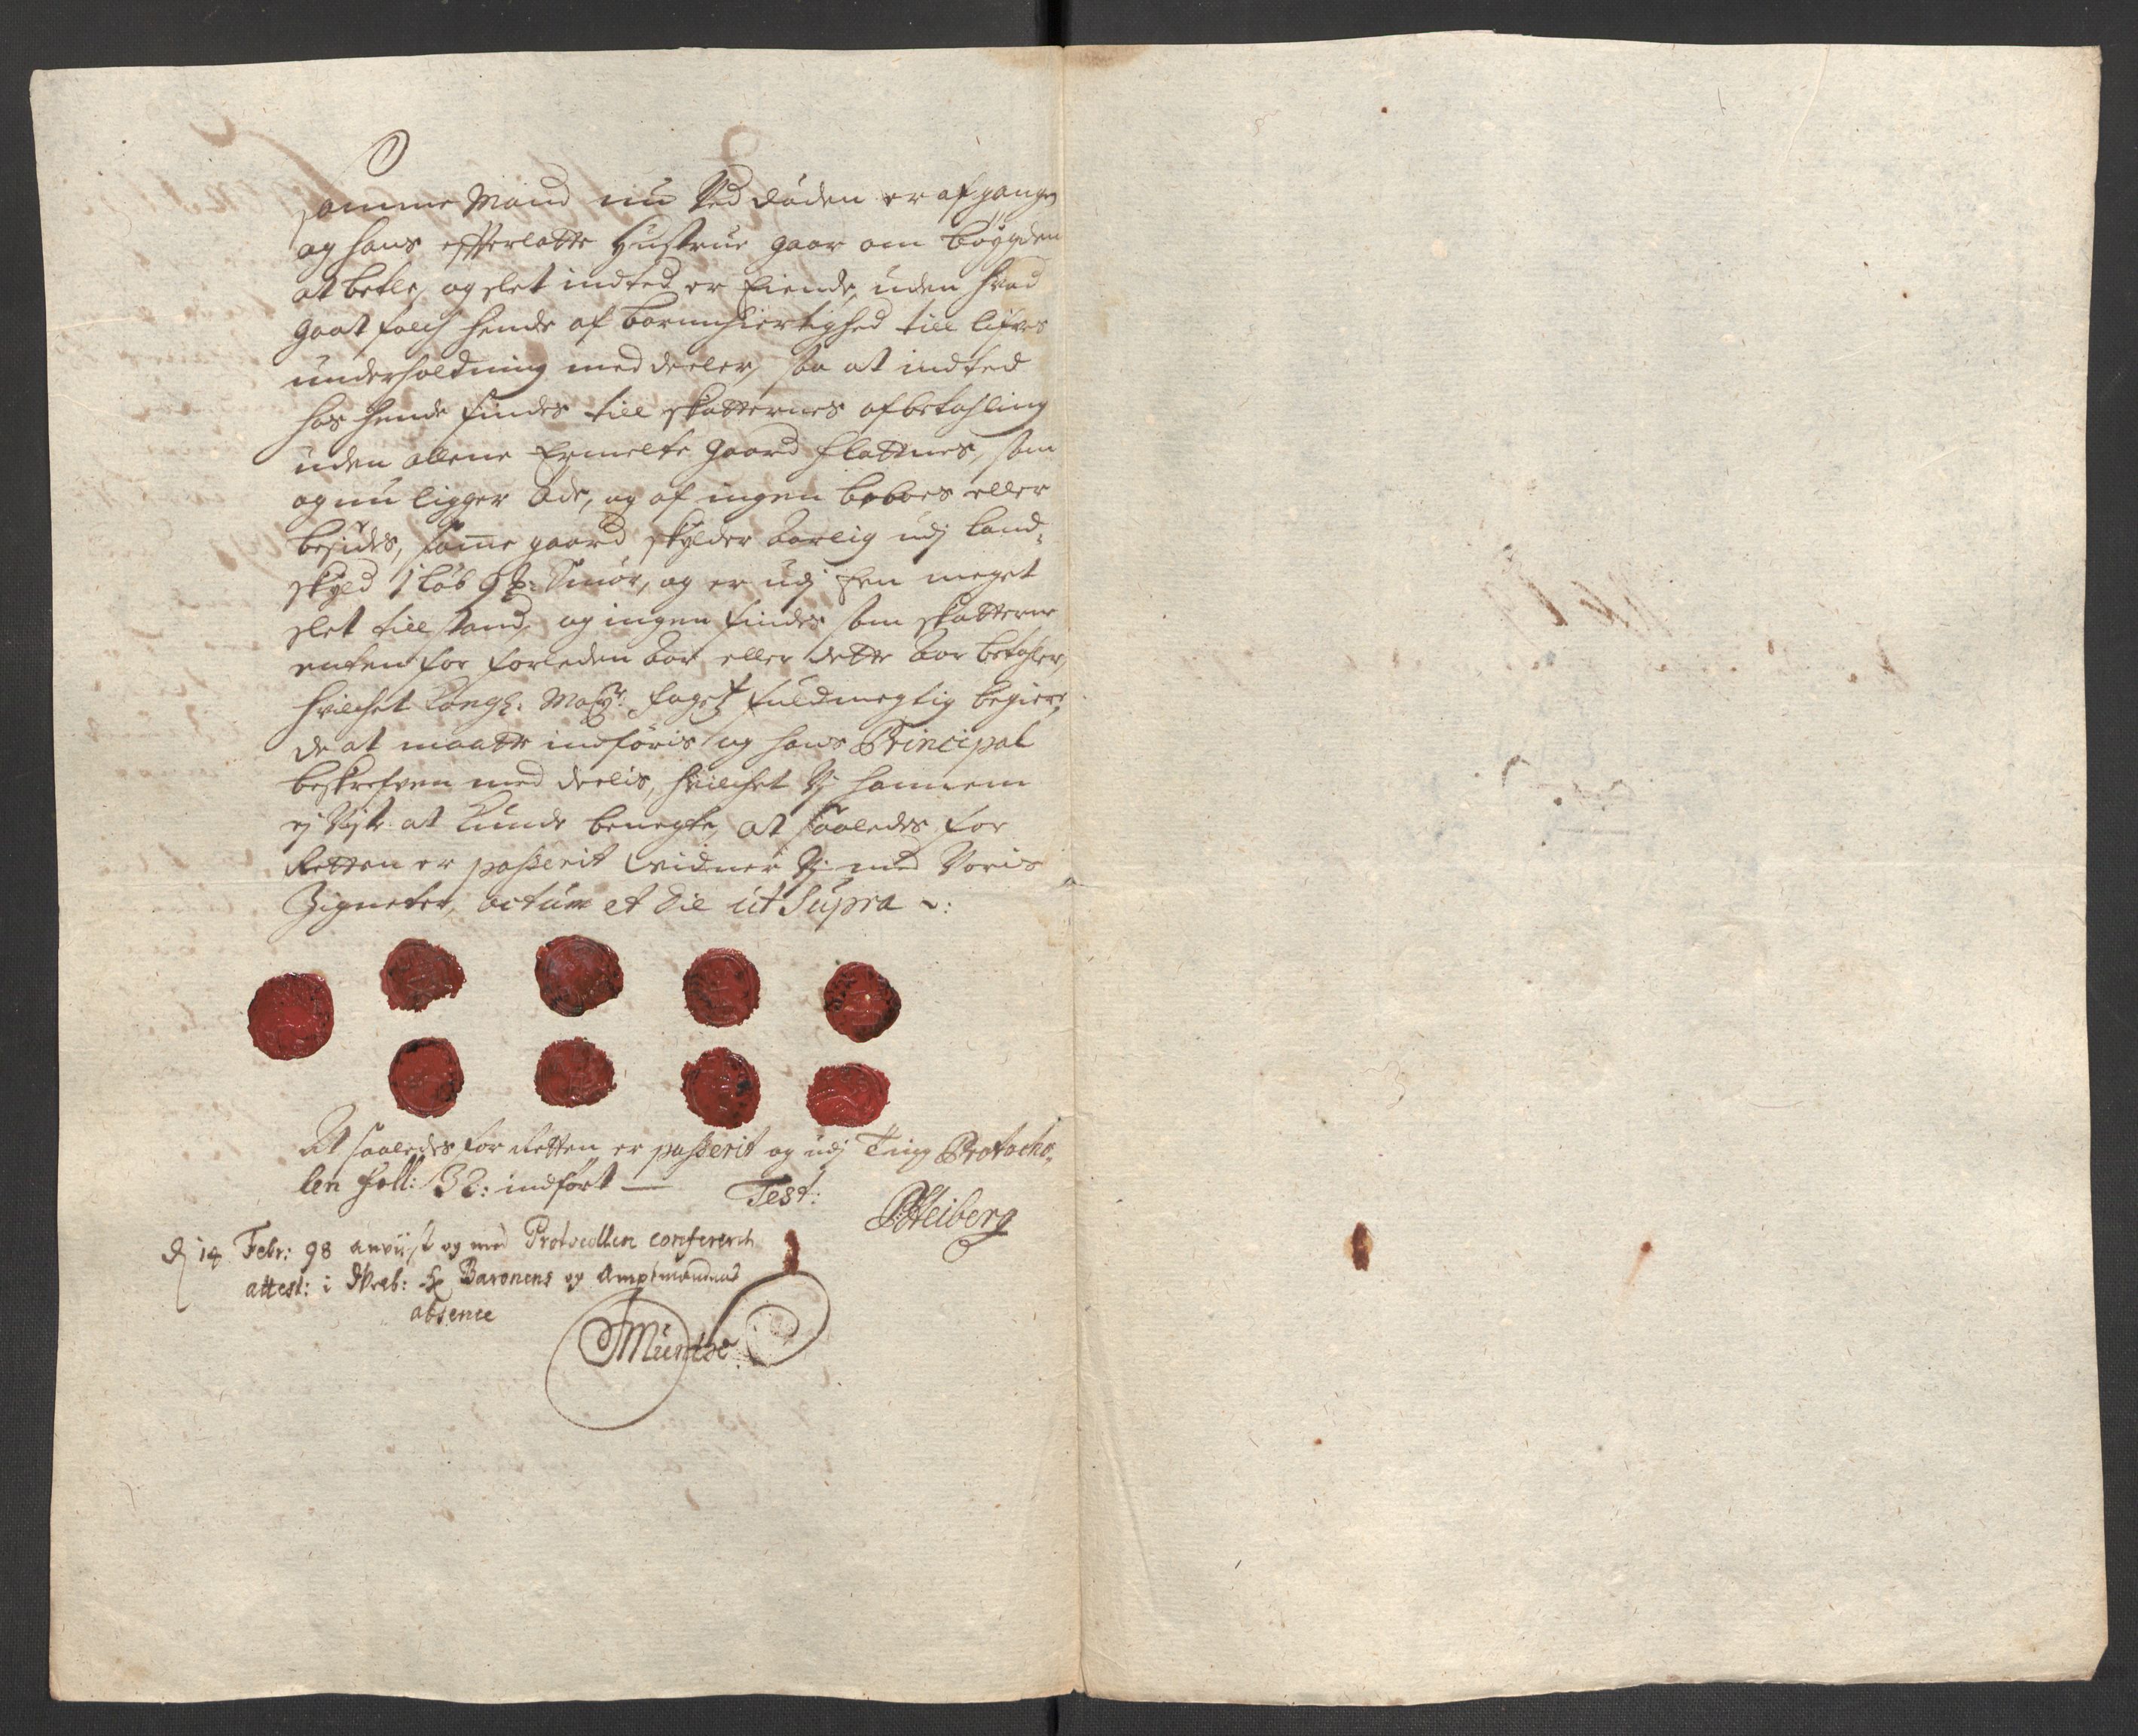 samme Mand nu Ved døden er afgangen
og hans efterlatte Hustrue gaar om bøygden
at betle, og slet indted er Eiende, uden hvad
gaat folch hende af barmhiertighed till lifves
underholdning meddeeler, saa at indted
hos hende findes till skatternes afbetahling
uden allene Ermelte gaard Flattnes, som
og nu ligger øde, og af ingen beboes eller
besides, samme gaard skylder aarlig udj land¬
skyld 1 løb 9 Smør, og er udj Een meget
slet tillstand og ingen findes som skatterne
enten for forleden aar eller dette aar betahler,
hvilchet Kongl: May: foget fuldmegtig begier¬
de at maatte indføris og hans Principal
beskrefven meddeelis, hvilchet Vj hannem
ej Viste at kunde benegte, at saaledes for
Retten er passerit vidner Vj med Voris
Zigneter, actum et die ut Supra
At saaledes for Retten er passerit og udj Ting Protocho¬
len foll: 32: indført — Test:
Heiberg
d 14 Febr: 98 anviist og med Protocollen confererit
attest: i Baronens og Amptmandens
absence
Munthe